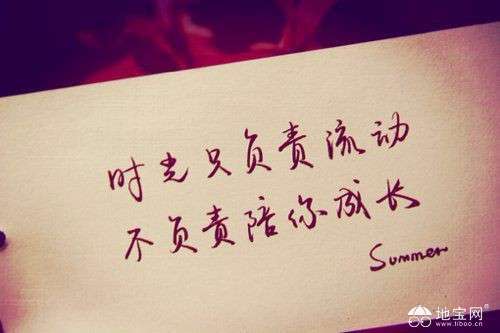 时光只负责流动
不负责陪你成长
Summer
地宝网
www.tiboo.cn